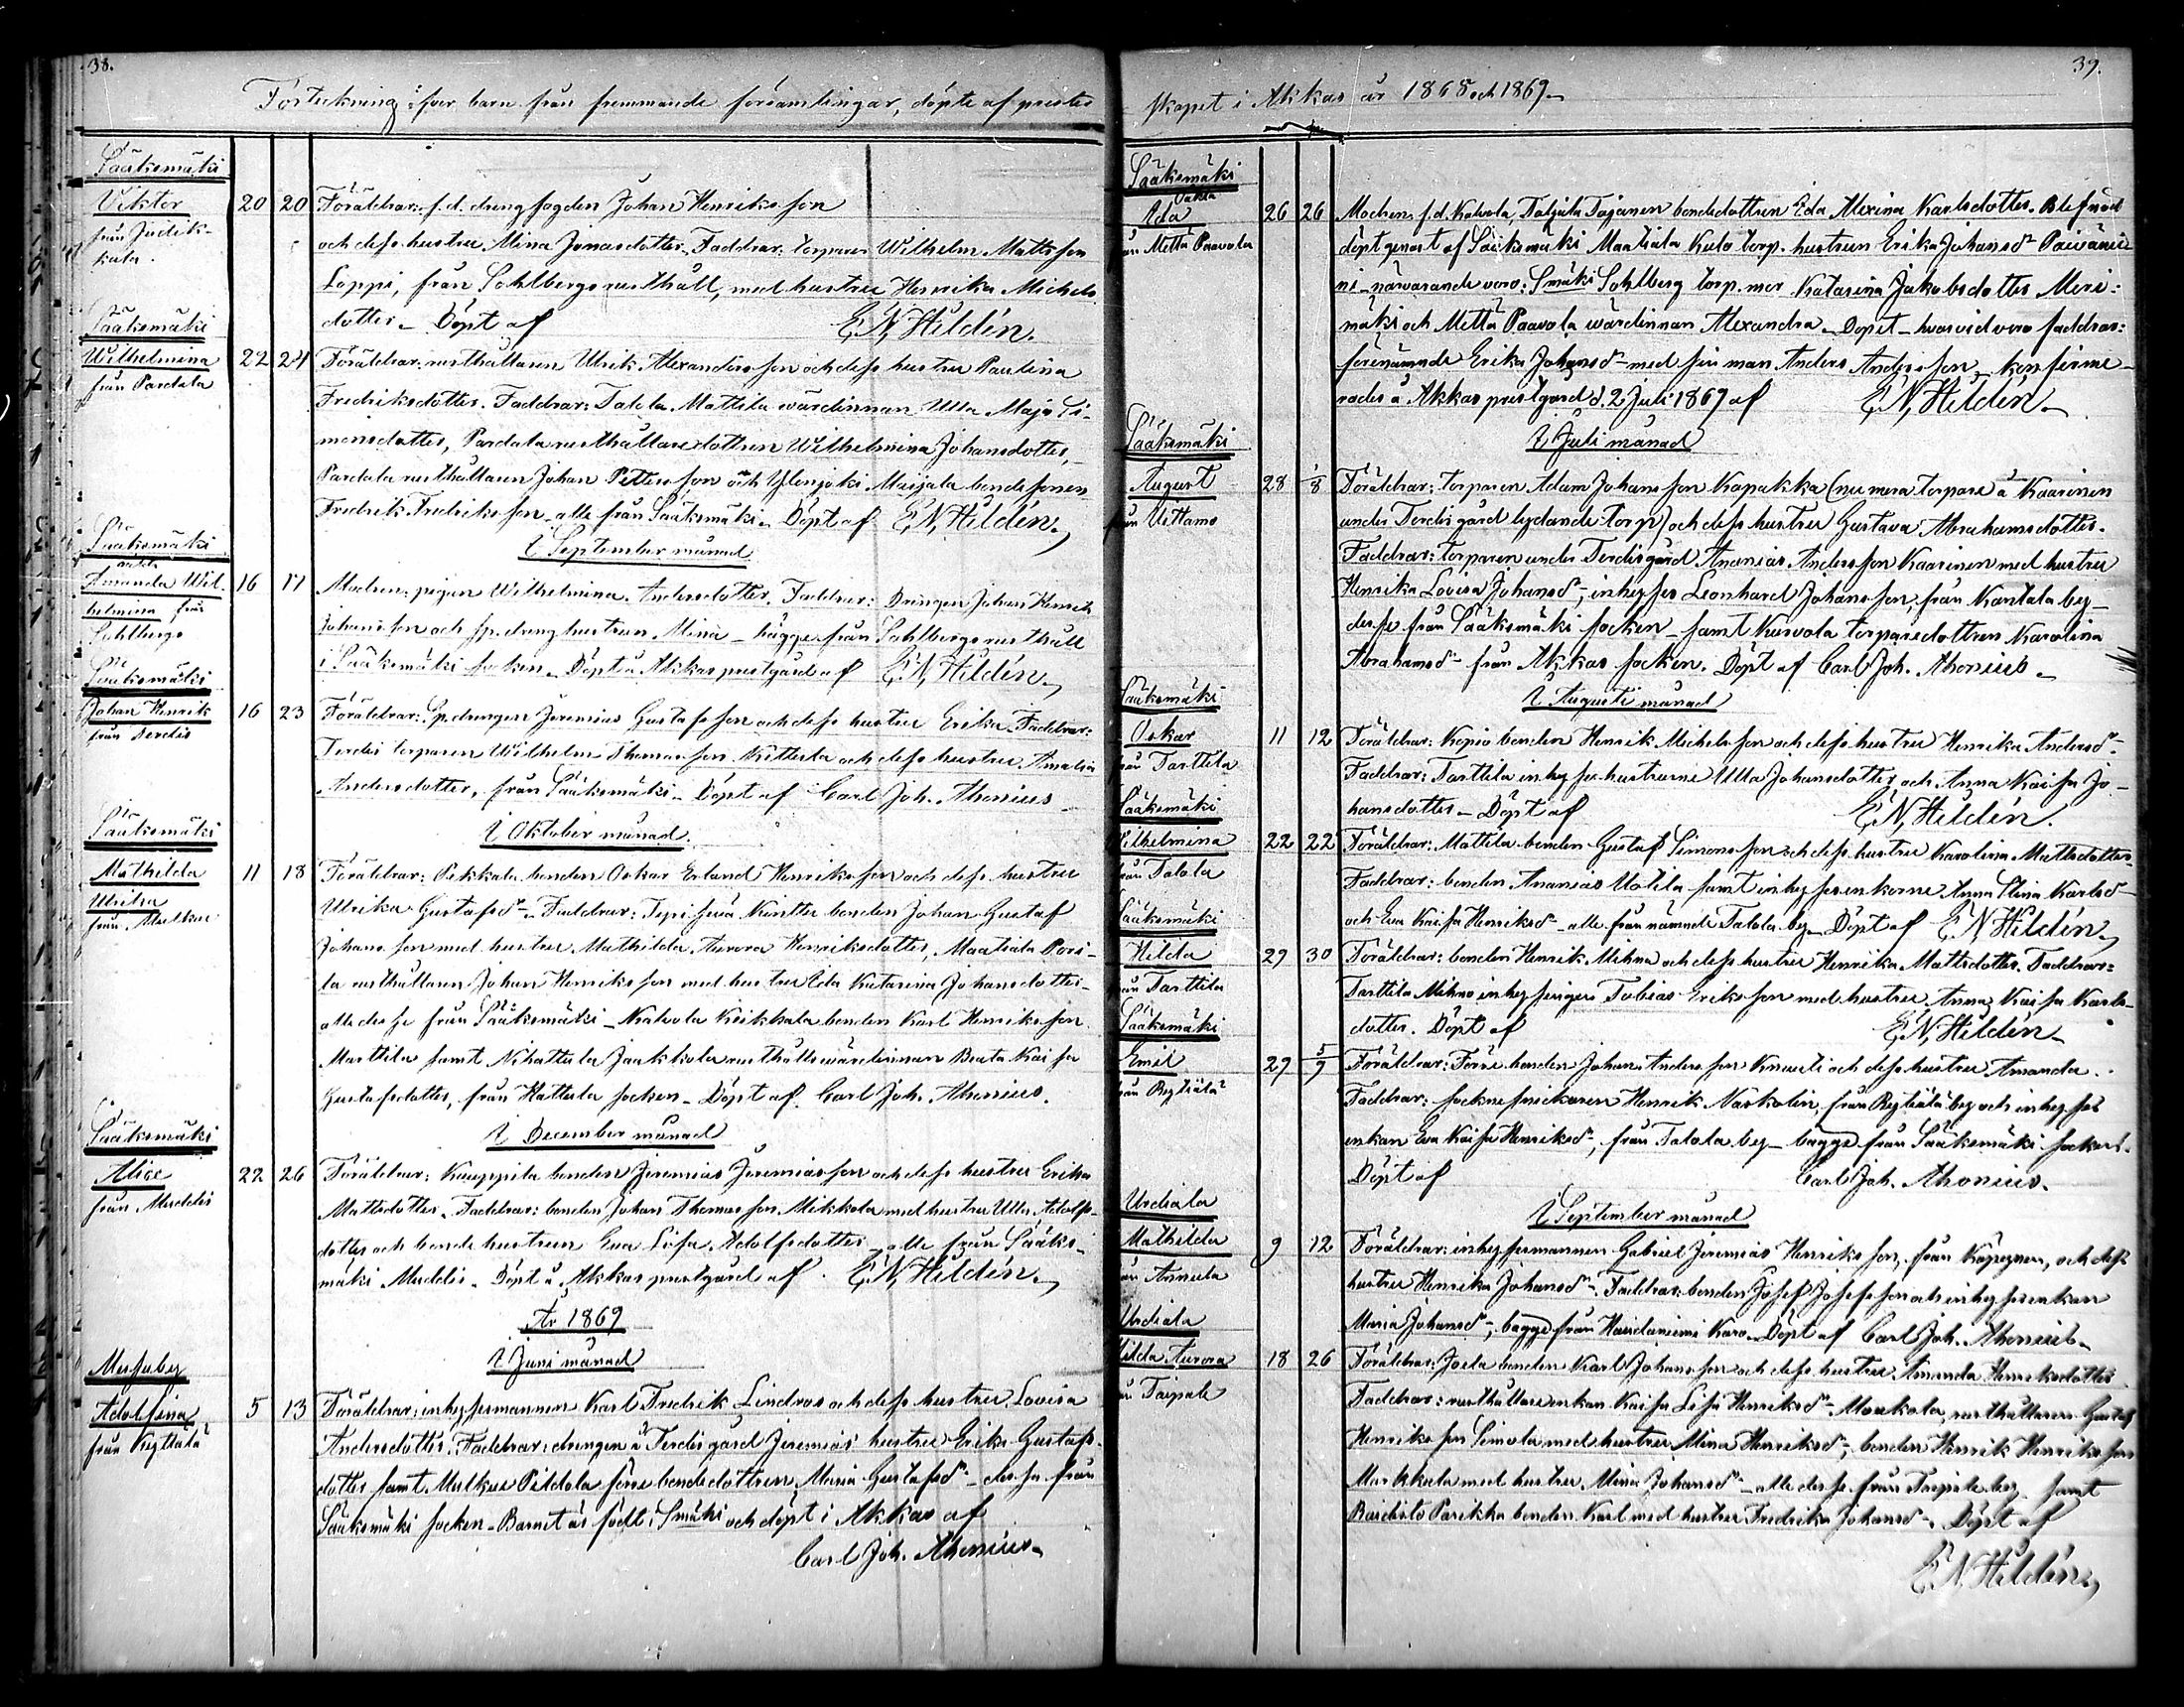 38.
Förteckning öfver barn från fremmande församlingar, döpte af prester
Sääksmäki
Viktor
från Jutik-
kala.
20 20 Föräldrar: f.d. drengfogden Johan Henriksson
och dess hustru Mina Jonasdotter. Faddrar: torparen Wilhelm Mattsson
Loppi, från Sohlbergs rusthåll, med hustru Henrika Michels-
dotter. Döpt af E. N. Hildén.
Sääksmäki
Wilhelmina
från Pardala
22 24 Föräldrar: rusthållaren Ulrik Alexandersson och dess hustru Paulina
Fredriksdotter. Faddrar: Talola Mattila wärdinnan Ulla Maja Si-
monsdotter, Pardala rusthållaredottren Wilhelmina Johansdotter,
Pardala rusthållaren Johan Pettersson och Ylenjoki Maijala bondesonen
Fredrik Fredriksson, alle från Sääksmäki. Döpt af E. N. Hildén.
I September månad
Sääksmäki
oäkta
Amanda Wil-
helmina från
Sohlbergs
16 17 Modren: pigan Wilhelmina Andersdotter. Faddrar: Drängen Johan Henrik
Johansson och sp. dreng hustrun Mina - bägge från Sohlbergs rusthåll
i Sääksmäki socken. Döpt å Akkas prestgård af E. N. Hildén.
Sääksmäki
Johan Henrik
från Terdis
16 23 Föräldrar: Sp. drengen Jeremias Gustafsson och dess hustru Erika. Faddrar:
Terdis torparen Wilhelm Thomasson Kittilä och dess hustru Amalia
Andersdotter, från Sääksmäki. Döpt af Carl Joh. Ahonius
I Oktober månad.
Sääksmäki
Mathilda
Ulrika
från Mälkiä
11 18 Föräldrar: Pekkala bonden Oskar Erland Henriksson och dess hustru
Ulrika Gustafsdr. Faddrar: Kinttu bonden Johan Gustaf
Johansson med hustru Mathilda Aurora Henriksdotter, Maatiala Pori-
la rusthållaren Johan Henriksson med hustru Eda Katarina Johansdotter
alle desse från Sääksmäki - Kalvola Keikkala bonden Karl Henriksson
Marttila samt Nihattula Jaakkola rusthålls wärdinnan Beata Kaisa
Gustafsdotter, från Hattula socken. Döpt af Carl Joh. Ahonius.
I December månad
Sääksmäki
Alice
från Muddis
22 26 Föräldrar: Kauppila bonden Jeremias Jeremiasson och dess hustru Erika
Mattsdotter. Faddrar: bonden Johan Thomasson Mikkola med hustru Ulla Adolfs-
dotter och bonde hustrun Eva Lisa Adolfsdotter - alle från Sääks-
mäki Muddis. Döpt å Akkas prestgård af E. N. Hildén
År 1869
I Juni månad
Adolfina
5 13 Föräldrar: inhysesmannen Karl Fredrik Lindroos och dess hustru Lovisa
Andersdotter. Faddrar: drengen å Terdis gård Jeremias' hustru Erika Gustafs-
dotter samt Mälkiä bondedottren Maria Gustafsdr. - desse från
Sääksmäki socken. Barnet är födt i Smäki och döpt i Akkas af
Carl Joh. Ahonius.
39.
skapet i Akkas år 1868 och 1869.
Sääksmäki
oäkta
Ida
från Mettä Paavola
26 26 Modren f.d. Kalvola Taljala Tajanen bondedottren Eda Alexina Karlsdotter. Blef nöd-
döpt genast af Sääksmäki Maatiala Kulo torp. hustrun Erika Johansdr Päivänie-
mi - närvarande voro: Smäki Sohlberg torp. mor Katarina Jakobsdotter Meri-
mäki och Mettä Paavola wärdinnan Alexandra. Dopet - hvarvid voro faddrar:
förenämnde Erika Johansdr med sin man Anders Andersson - konfirme-
rades å Akkas prestgård d. 2 Juli 1869 af E. N. Hildén.
I Juli månad
Sääksmäki
August
från Uittamo
28 1/8 Föräldrar: torparen Adam Johansson Kapakka (numera torpare å Kaarinen
under Terdis gård lydande torp) och dess hustru Gustava Abrahamsdotter.
Faddrar: torparen under Terdisgård Ananias Andersson Kaarinen med hustru
Henrika Lovisa Johansdr, inhyses Leonhard Johansson, från Kantala by -
desse från Sääksmäki socken - samt Kurvola torparedottren Karolina
Abrahamsdr från Akkas socken. Döpt af Carl Joh. Ahonius.
I Augusti månad
Sääksmäki
Oskar
från Tarttila
11 12 Föräldrar: Kopio bonden Henrik Michelsson och dess hustru Henrika Andersdr.
Faddrar: Tarttila inhyses hustrurne Ulla Johansdotter och Anna Kaisa Jo-
hansdotter. Döpt af E. N. Hildén.
Sääksmäki
Wilhelmina
från Talola
22 22 Föräldrar: Mattila bonden Gustaf Simonsson och dess hustru Karolina Mattsdotter.
Faddrar: bonden Ananias Uotila samt inhyses enkorne Anna Stina Karlsdr
och Eva Kaisa Henriksdr - alle från nämnde Talola by. Döpt af E. N. Hildén
Sääksmäki
Hilda
från Tarttila
29 30 Föräldrar: bonden Henrik Mikma och dess hustru Henrika Mattsdotter. Faddrar:
Tarttila inhysesinge Tobias Eriksson med hustru Anna Kaisa Karls-
dotter. Döpt af E. N. Hildén
Sääksmäki
Emil
29 5/9 Föräldrar: bonden Johan Andersson Knuuti och dess hustru Amanda.
Faddrar: sockne snickaren Henrik Näskolin, från by och inhyses
enkan Eva Kaisa Henriksdr, från Talola by - bägge från Sääksmäki socken.
Döpt af Carl Joh. Ahonius.
I September månad
Urdiala
Mathilda
från Annula
9 12 Föräldrar: inhysesmannen Gabriel Jeremias Henriksson, från, och dess
hustru Henrika Johansdr. Faddrar: bonden Josef Josefsson och inhyses enkan
Maria Johansdr, bägge från Haudaniemi Karo. Döpt af Carl Joh. Ahonius.
Urdiala
Hilda Aurora
från Taipale
18 26 Föräldrar: Josla bonden Karl Johansson och dess hustru Amanda Henriksdotter
Faddrar: rusthållare enkan Kaisa Lisa Henriksdr, rusthållaren Gustaf
Henriksson Simola med hustru Mina Henriksdr, bonden Henrik Henriksson
Markkala med hustru Mina Johansdr - alle desse från Taipale by samt
Parikka bonden Karl med hustru Fredrika Johansdr. Döpt af
E. N. Hildén